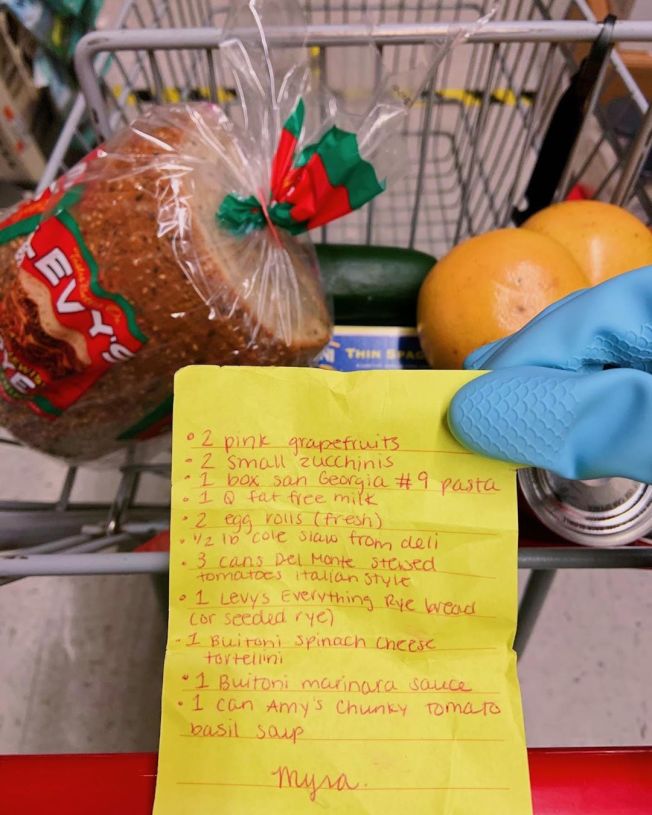 LEVY'S
RYE
THIN SPAG
• 2 pink grapefruits
• 2 small zucchinis
• 1 box san Georgia #9 pasta
• 1 Q fat free milk
• 2 egg rolls (fresh)
• 1/2 lb cole slaw from deli
• 3 cans Del Monte stewed
tomatoes italian style
• 1 Levys Everything Rye bread
(or seeded rye)
• 1 Buitoni spinach cheese
tortellini
• 1 Buitoni marinara sauce
• 1 can Amy's chunky tomato
basil soup
Myra.